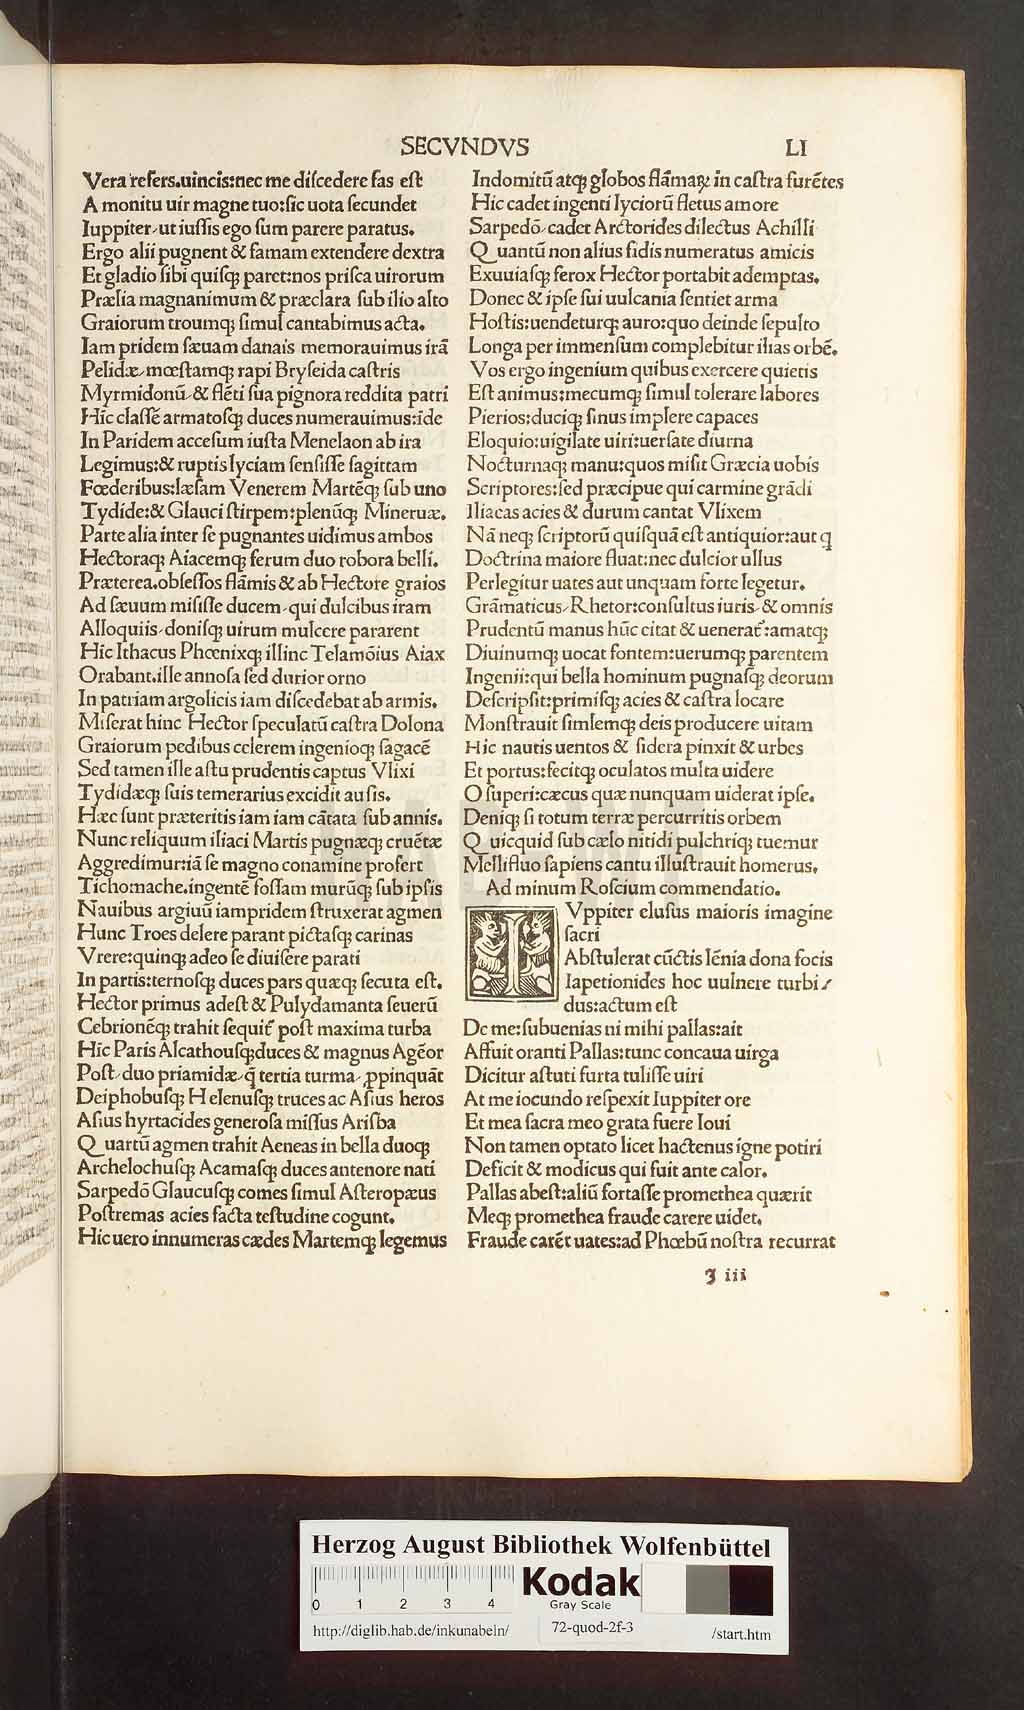 SECVNDVS
LI
Vera refers.uincis:nec me diſcedere fas eſt
A monitu uir magne tuo:ſic uota ſecundet
Iuppiter⸝ut iuſſis ego ſum parere paratus.
Ergo alii pugnent & famam extendere dextra
Et gladio ſibi quiſqꝫ paret:nos priſca uirorum
Prælia magnanimum & præclara ſub ilio alto
Graiorum troumqꝫ ſimul cantabimus acta.
Iam pridem ſæuam danais memorauimus irã
Pelidæ⸝mœſtamqꝫ rapi Bryſeida caſtris
Myrmidonũ⸝& flẽti ſua pignora reddita patri
Hic claſſẽ armatoſqꝫ duces numerauimus:ĩde
In Paridem accefum iuſta Menelaon ab ira
Legimus:& ruptis lyciam ſenſiſſe ſagittam
Fœderibus:læſam Venerem Martẽqꝫ ſub uno
Tydide:& Glauci ſtirpem:plenũqꝫ Mineruæ.
Parte alia inter ſe pugnantes uidimus ambos
Hectoraqꝫ Aiacemqꝫ ferum duo robora belli.
Præterea.obſeſſos flãmis & ab Hectore graios
Ad ſæuum miſiſſe ducem⸝qui dulcibus iram
Alloquiis⸝doniſqꝫ uirum mulcere pararent
Hic Ithacus Phœnixqꝫ illinc Telamõius Aiax
Orabant.ille annoſa ſed durior orno
In patriam argolicis iam diſcedebat ab armis.
Miſerat hinc Hector ſpeculatũ caſtra Dolona
Graiorum pedibus celerem ingenioqꝫ ſagacẽ
Sed tamen ille aſtu prudentis captus Vlixi
Tydidæqꝫ ſuis temerarius excidit auſis.
Hæc ſunt præteritis iam iam cãtata ſub annis.
Nunc reliquum iliaci Martis pugnæqꝫ cruẽtæ
Aggredimur:iã ſe magno conamine profert
Tichomache.ingentẽ foſſam murũqꝫ ſub ipſis
Nauibus argiuũ iampridem ſtruxerat agmen
Hunc Troes delere parant pictaſqꝫ carinas
Vrere:quinqꝫ adeo ſe diuiſere parati
In partis:ternoſqꝫ duces pars quæqꝫ ſecuta eſt.
Hector primus adeſt & Pulydamanta ſeuerũ
Cebrionẽqꝫ trahit ſequit᷑ poſt maxima turba
Hic Paris Alcathouſqꝫ duces & magnus Agẽor
Poſt⸝duo priamidæ⸝q̃ tertia turma⸝ꝓpinquãt
Deiphobuſqꝫ Helenuſqꝫ truces ac Aſius heros
Aſius hyrtacides generoſa miſſus Ariſba
Quartũ agmen trahit Aeneas in bella duoqꝫ
Archelochuſqꝫ Acamaſqꝫ duces antenore nati
Sarpedõ Glaucuſqꝫ comes ſimul Aſteropæus
Poſtremas acies facta teſtudine cogunt.
Hic uero innumeras cædes Martemqꝫ legemus
Indomitũ atqꝫ globos flãmaꝝ in caſtra furẽtes
Hic cadet ingenti lyciorũ fletus amore
Sarpedõ⸝cadet Arctorides dilectus Achilli
Quantũ non alius fidis numeratus amicis
Exuuiaſqꝫ ferox Hector portabit ademptas.
Donec & ipſe ſui uulcania ſentiet arma
Hoſtis:uendeturqꝫ auro:quo deinde ſepulto
Longa per immenſum complebitur ilias orbẽ.
Vos ergo ingenium quibus exercere quietis
Eſt animus:mecumqꝫ ſimul tolerare labores
Pierios:duciqꝫ ſinus implere capaces
Eloquio:uigilate uiri:uerſate diurna
Nocturnaqꝫ manu:quos miſit Græcia uobis
Scriptores:ſed præcipue qui carmine grãdi
Iliacas acies & durum cantat Vlixem
Nã neqꝫ ſcriptorũ quiſquã eſt antiquior:aut ꝗ
Doctrina maiore fluat:nec dulcior ullus
Perlegitur uates aut unquam forte legetur.
Grãmaticus⸝Rhetor:conſultus iuris⸝& omnis
Prudentũ manus hũc citat & uenerat᷑:amatqꝫ
Diuinumqꝫ uocat fontem:uerumqꝫ parentem
Ingenii:qui bella hominum pugnaſqꝫ deorum
Deſcripſit:primiſqꝫ acies & caſtra locare
Monſtrauit ſimlemqꝫ deis producere uitam
Hic nautis uentos & ſidera pinxit & urbes
Et portus:fecitqꝫ oculatos multa uidere
O ſuperi:cæcus quæ nunquam uiderat ipſe.
Deniqꝫ ſi totum terræ percurritis orbem
Quicquid ſub cælo nitidi pulchriqꝫ tuemur
Mellifluo ſapiens cantu illuſtrauit homerus.
Ad minum Roſcium commendatio.
IVppiter eluſus maioris imagine
ſacri
Abſtulerat cũctis lẽnia dona focis
Iapetionides hoc uulnere turbi⸗
dus:actum eſt
De me:ſubuenias ni mihi pallas:ait
Affuit oranti Pallas:tunc concaua uirga
Dicitur aſtuti furta tuliſſe uiri
At me iocundo reſpexit Iuppiter ore
Et mea ſacra meo grata fuere Ioui
Non tamen optato licet hactenus igne potiri
Deficit & modicus qui fuit ante calor.
Pallas abeſt:aliũ fortaſſe promethea quærit
Meqꝫ promethea fraude carere uidet.
Fraude carẽt uates:ad Phœbũ noſtra recurrat
I iii
HAB-WF
Herzog August Bibliothek Wolfenbüttel
0 1 2 3 4
Kodak
Gray Scale
http://diglib.hab.de/inkunabeln/
72-quod-2f-3
/start.htm